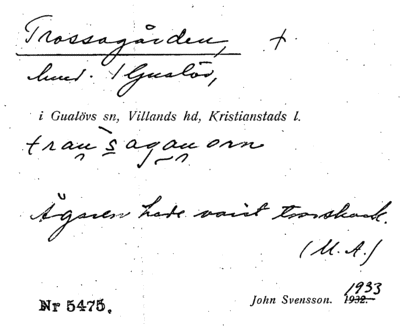 Trossagården, +
hmd. 1 Gualöv,
i Gualövs sn, Villands hd, Kristianstads l.
Ägaren hade varit trosskock.
(M.A.)
Nr 5475.
John Svensson. 1932. 1933